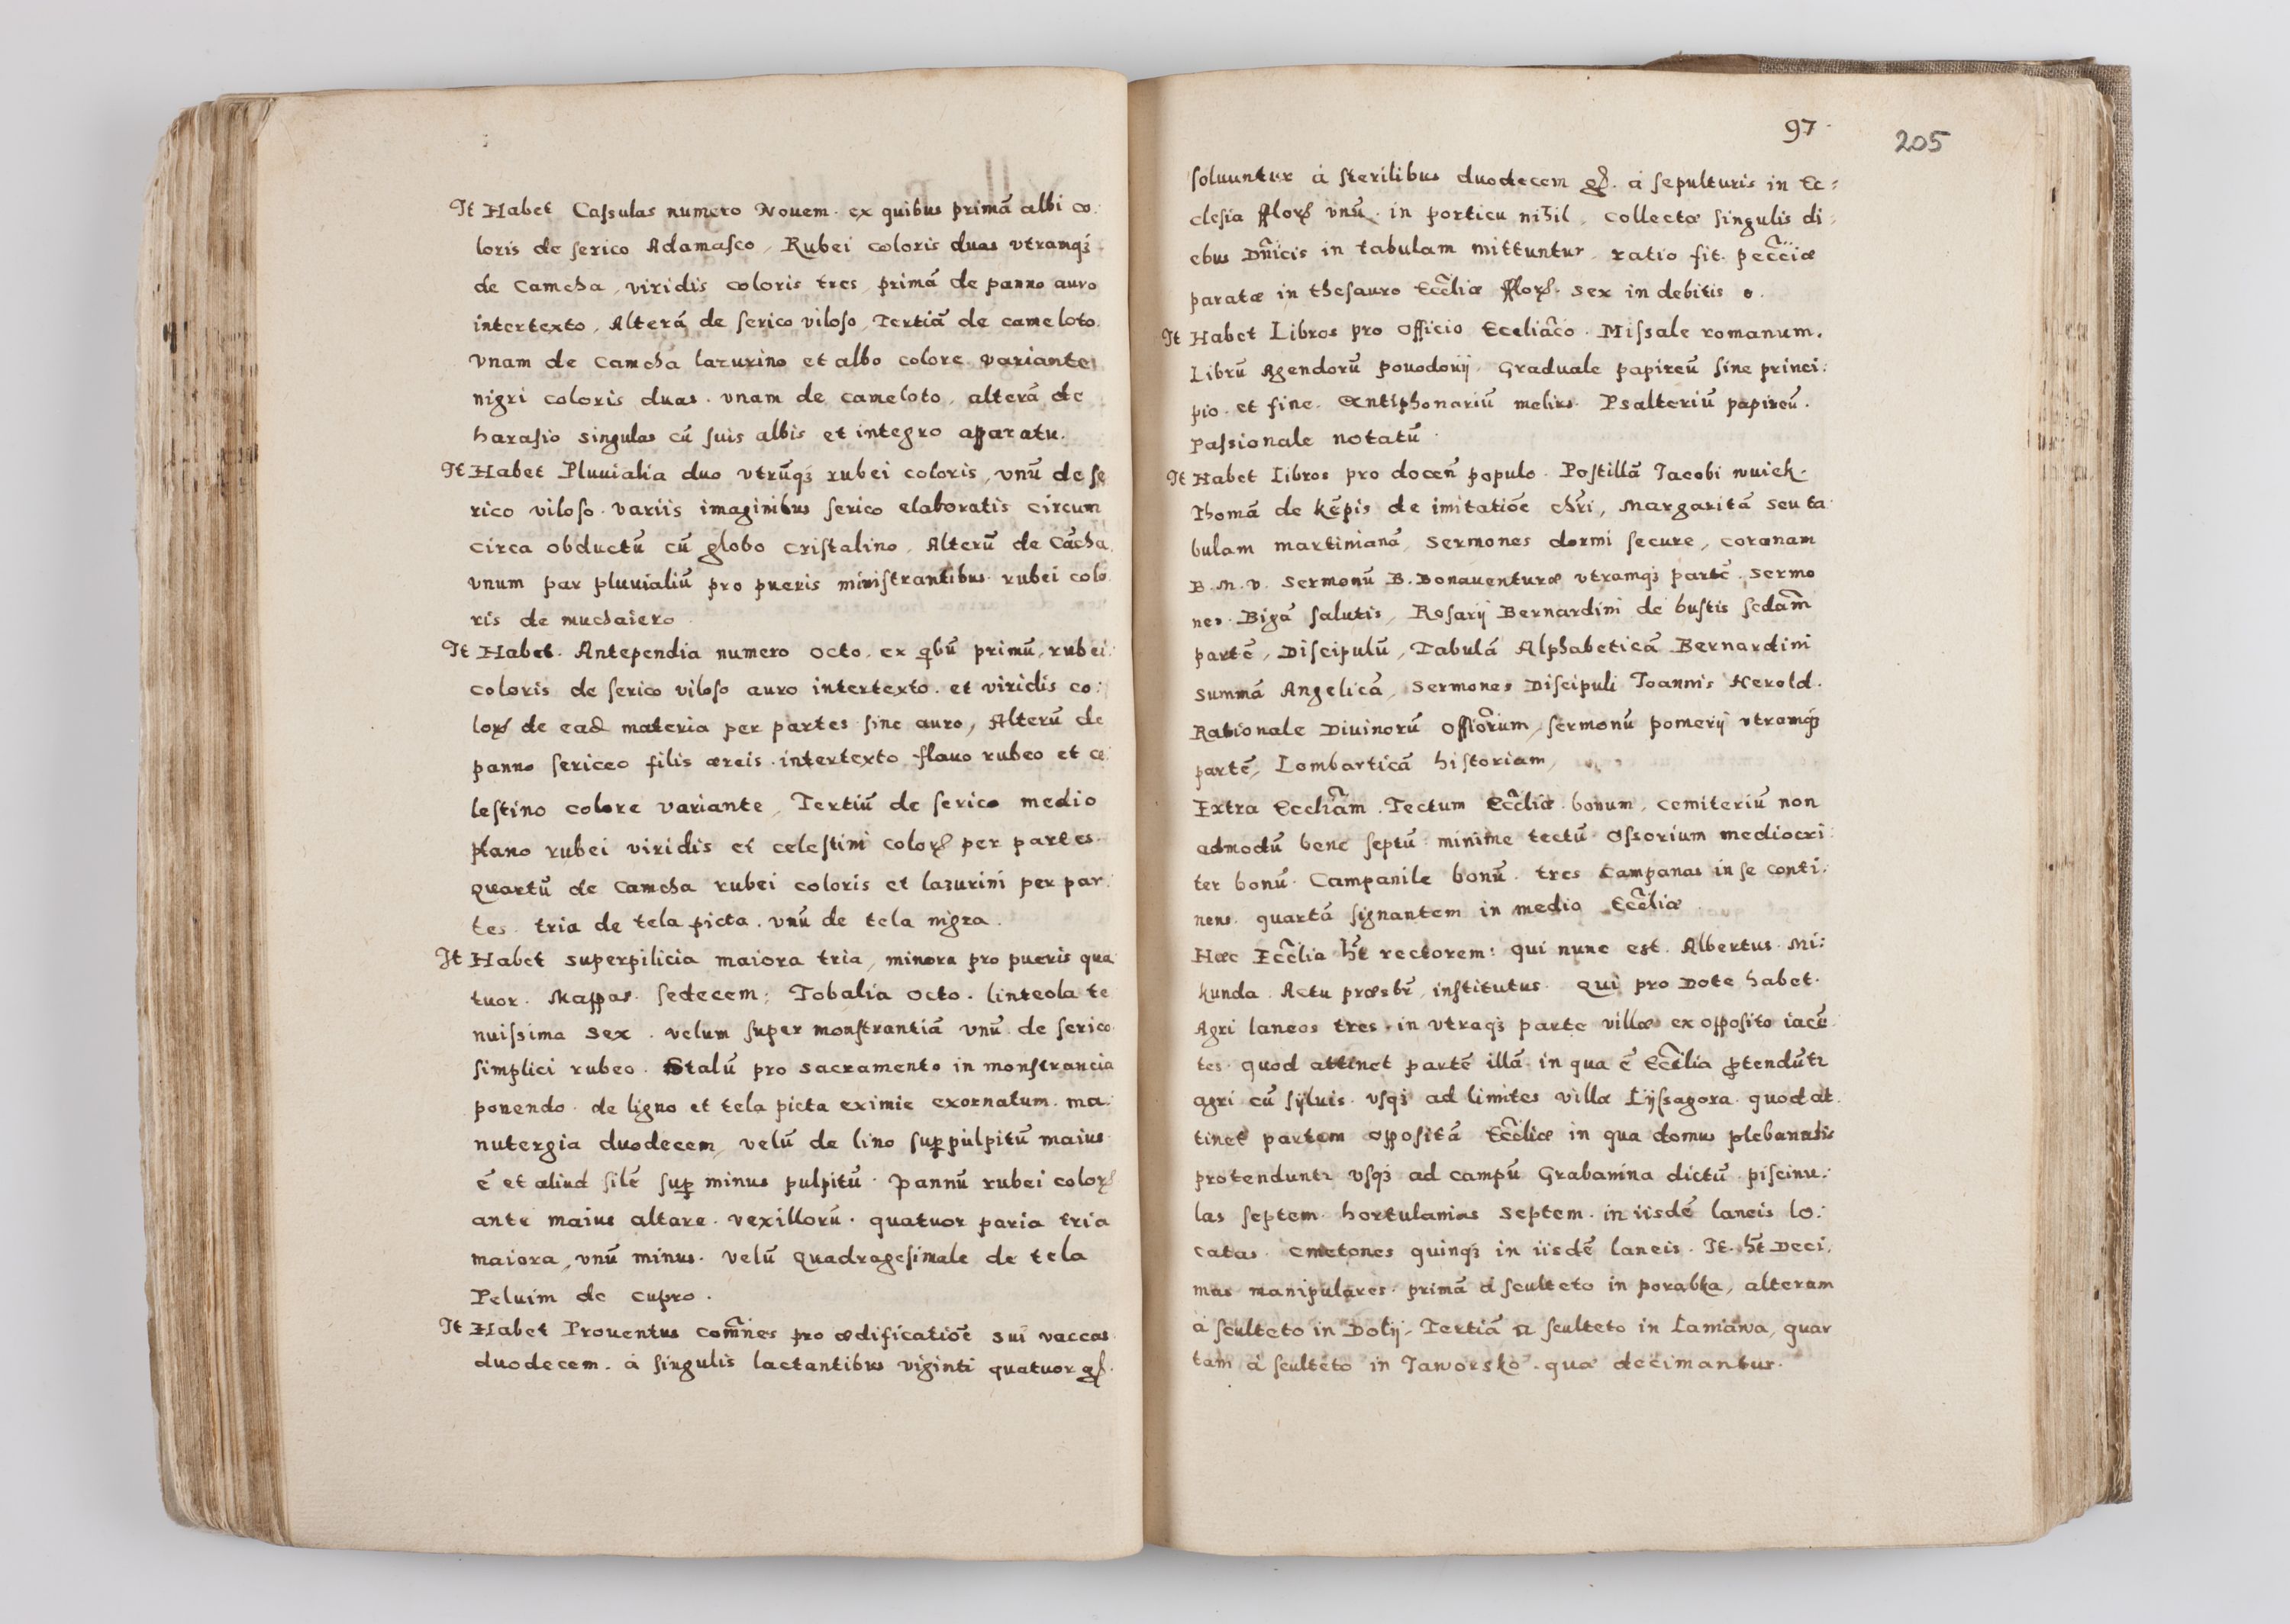 It Habet Caſsulas numero Nouem. ex quibus primā albi co:
loris de ſerico Adamaſco, Rubei coloris duas vtramqꝫ
de Camcha, viridis coloris tres, primā de panno auro
intertexto, Alterā de ſerico viloſo, Tertiā de cameloto.
vnam de Camcha lazurino et albo colore variante
nigri coloris duas. vnam de cameloto, alterā de
haraſio singulas cū ſuis albis et integro apparatu.
It Habet Pluuialia duo vtrūqꝫ rubei coloris, vnū de ſe
rico viloſo. variis imaginibus ſerico elaboratis circum
circa obductū cū globo criſtalino, Alterū de Cācha
vnum par pluuialiū pro pueris miniſtrantibus rubei colo
ris de muchaiero.
It Habet. Antependia numero octo. ex qbū primū, rubei
coloris de ſerico viloſo auro intertexto. et viridis co:
loꝝ de ead materia per partes ſine auro, Alterū de
panno ſericeo filis æreis. intertexto flauo rubeo et ce:
leſtino colore variante, Tertiū de ſerico medio
plano rubei viridis et celeſtini coloꝝ per partes.
quartū de Camcha rubei coloris et lazurini per par:
tes. tria de tela picta. vnū de tela nigra.
It Habet superpilicia maiora tria, minora pro pueris qua
tuor. Mappas. ſedecem; Tobalia octo. linteola te
nuiſsima sex. velum ſuper monſtrantiā vnū de ſerico
ſimplici rubeo. Stalū pro sacramento in monſtrancia
ponendo. de ligno et tela picta eximie exornatum. ma:
nutergia duodecem, velū de lino ſuꝑ pulpitū maius
ē et aliud ſilē ſuꝑ minus pulpitū. Pannū rubei coloꝝ
ante maius altare. vexillorū. quatuor paria tria
maiora, vnū minus. velū quadrageſimale de tela
Peluim de cupro.
It Habet Prouentus com̄nes pro ædificatiōe sui vaccas
duodecem. á ſingulis lactantibus viginti quatuor gſ.
97.
205
ſoluuntur á ſterilibus duodecem gſ. á ſepulturis in Ec:
cleſia ffloꝝ vnū. in porticu nihil. collectæ ſingulis di:
ebus Dn̄icis in tabulam mittuntur. ratio fit. pec̄ciæ
paratæ in theſauro Ecc̄liæ ffloꝝ. sex in debitis o.
It Habet Libros pro officio Eccliāco. Miſsale romanum.
Librū Agendorū Pouodouij. Graduale papireū ſine princi:
pio. et fine. Antiphonariū melius. Psalteriū papireū.
paſsionale notatū.
It Habet Libros pro docen̄ populo. Poſtillā Jacobi wuiek.
Thomā de kēpis de imitatiōe chr̄i, Margaritā seu ta:
bulam martinianā, sermones dormi ſecure, coronam
B. M. V. Sermonū B. Bonauenturæ vtramqꝫ partē. Sermo
nes. Bigā ſalutis, Roſarij Bernardini de buſtis ſcdam̄
partē, Diſcipulū, Tabulā Alphabeticā Bernardini
Summā Angelicā, Sermones Diſcipuli Joannis Herold.
Rationale Diuinorū offiōrum, ſermonū pomerij vtramqꝫ
partē, Lombarticā hiſtoriam,
Extra Eccliām. Tectum Ecc̄liæ bonum, cemiteriū non
admodū bene ſeptū minime tectū oſsorium mediocri:
ter bonū. Campanile bonū. tres campanas in ſe conti:
nens. quartā ſignantem in medio Ecc̄liæ
Hæc Ecc̄lia h̄t rectorem: qui nunc est. Albertus Mi:
kunda. Actu præsbr̄, inſtitutus. Qui pro Dote habet.
Agri laneos tres. in vtraqꝫ parte villæ ex oppoſito iacē:
tes. quod attinet partē illā in qua ē Ecc̄lia ꝑtendūtr
agri cū ſyluis. vſqꝫ ad limites villæ Lyſsagora. quod at:
tinet partem oppoſitā Ecc̄liæ in qua domus plebanalis
protenduntr vſqꝫ ad campū Grabanina dictū. piſcinu:
las ſeptem. hortulanias septem. in iisdē laneis lo:
catas. Cmetones quinqꝫ in iisdē laneis. It. h̄t Deci:
mas manipulares. primā á ſculteto in porabka, alteram
á ſculteto in Dolij, Tertiā á ſculteto in Łamāwa, quar
tam á ſculteto in Jaworsko. quæ decimantur.